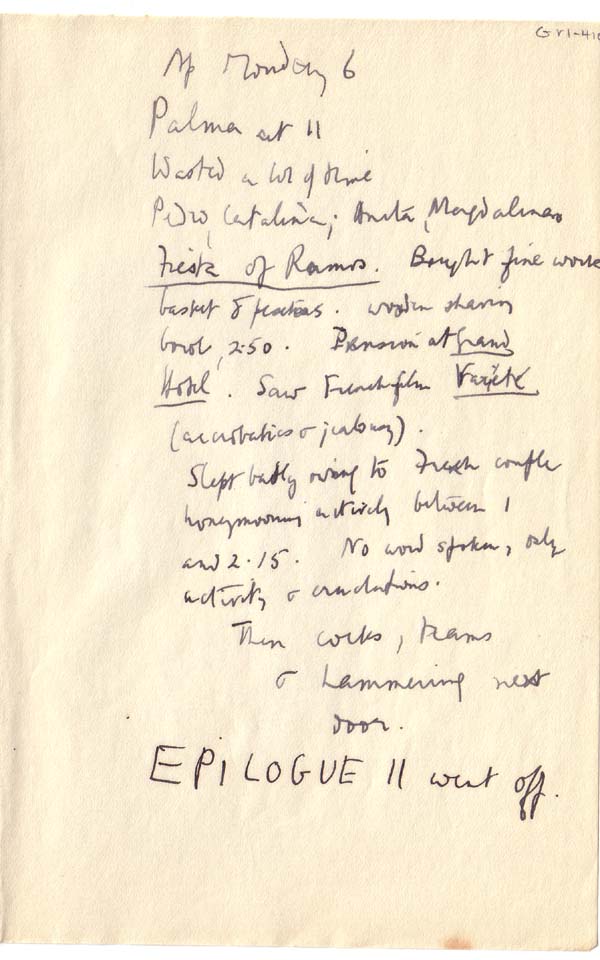 Ap Monday 6
Palma at 11
Wasted a lot of time
Pedro, Catalina; Anita, Magdalena
Fiesta of Ramos. Bought fine work
basket 8 pesetas. wooden shaving
bowl, 2.50. Pension at Grand
Hotel. Saw French film Varieté
(acrobatics & jealousy).
Slept badly owing to French couple
honeymooning actively between 1
and 2.15. No word spoken, only
activity &
Then cocks, trams
& hammering next
door.
EPILOGUE 11 went off.